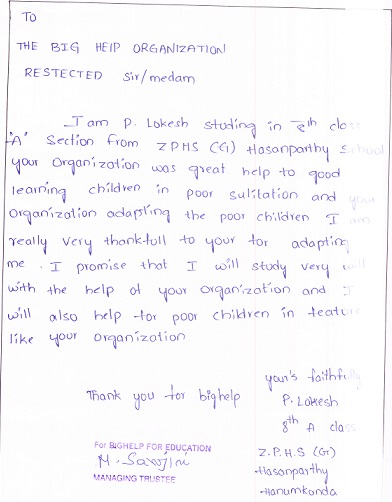 TO
THE BIG HEIP ORGANIZATION
RESTECTED sir/medam
I am P. Lokesh studing in 8th clas
"A" Section from ZPHS (G) Hasanparthy School
your organization was great help to good
learning children in poor sulitation and your
Organization adapsting the poor children I am
really very thank-full to your for adapting
me. I promise that I will study very well
with the help of your organization and I
will also help for poor children in feature
like your organization
your's faithfully
Thank you for bighelp
P. Lokesh
8th A class
For BIGHELP FOR EDUCATION
M. Sarojini
MANAGING TRUSTEE
Z.P.H.S (G)
Hasanparthy
Hanumkonda